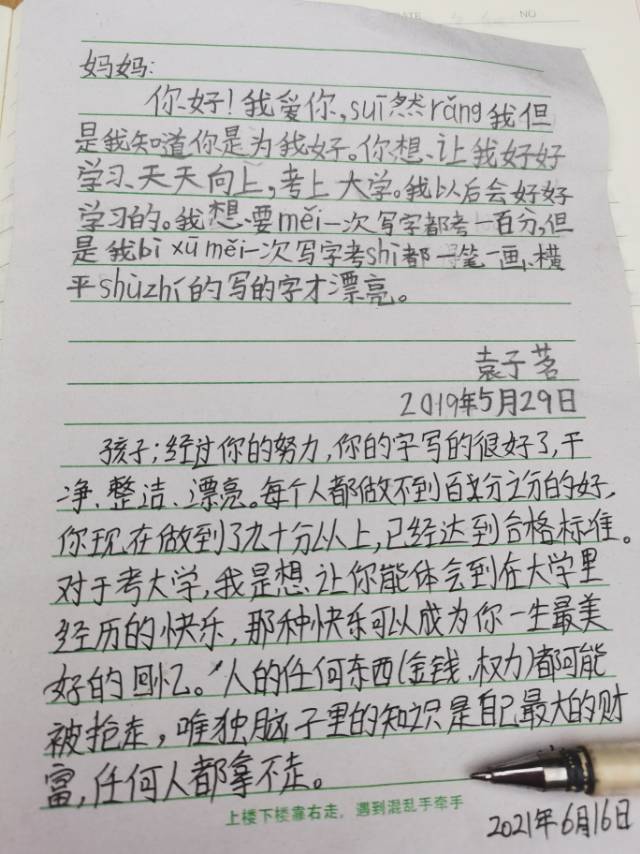 妈妈:
你好!我爱你,suī然rǎng我但
是我知道你是为我好。你想、让我好好
学习、天天向上,考上大学。我以后会好好
学习的。我想、要měi一次写字都考一百分,但
是我bì xū měi一次写字考shì都一笔一画、横
平shùzhí的写的字才漂亮。
袁子茗
2019年5月29日
孩子;经过你的努力,你的字写的很好了,干
净、整洁、漂亮。每个人都做不到百分之分的好,
你现在做到了九十分以上,已经达到合格标准。
对于考大学,我是想让你能体会到在大学里
经历的快乐,那种快乐可以成为你一生最美
好的回忆。人的任何东西(金钱、权力)都可能
被抢走,唯独脑子里的知识是自己最大的财
富,任何人都拿不走。
上楼下楼靠右走,遇到混乱手牵手
2021年6月16日
NO